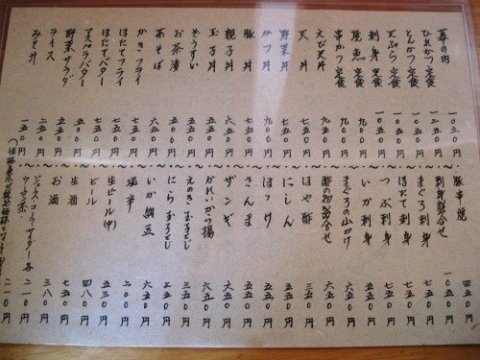 幕の内 一〇五〇円
ひれかつ定食 一〇五〇円
とんかつ定食 九五〇円
天ぷら定食 一〇五〇円
刺身定食
焼魚定食 九〇〇円
串かつ定食 九〇〇円
えび天丼 九五〇円
天丼 七五〇円
野菜丼 七五〇円
かつ丼 九〇〇円
豚丼 七五〇円
親子丼 七五〇円
玉子丼 六五〇円
ぞうすい 五〇〇円
お茶漬 五〇〇円
茶そば 六五〇円
かきフライ 七五〇円
ほたてフライ 七五〇円
ほたてバター 七五〇円
アスパラバター 五五〇円
野菜サラダ 五五〇円
ライス 二五〇円
みそ汁 一五〇円
豚串焼 四五〇円
刺身盛合せ 一〇五〇円
まぐろ刺身 七五〇円
ほたて刺身 七五〇円
つぶ刺身 七五〇円
いか刺身 六五〇円
まぐろの山かけ 七五〇円
酢の物盛合せ 六五〇円
ほや酢 五五〇円
にしん 五五〇円
ほっけ 五五〇円
さんま 五五〇円
ザンギ 六五〇円
かれいから揚 六五〇円
えのき玉子とじ 三五〇円
にら玉子とじ 三五〇円
いか納豆 六五〇円
塩辛 二〇〇円
生ビール(中) 五三〇円
ビール 四八〇円
生酒 七五〇円
お酒 三八〇円
ジュース・コーラ・サイダー各 二一〇円
ウーロン茶 二一〇円